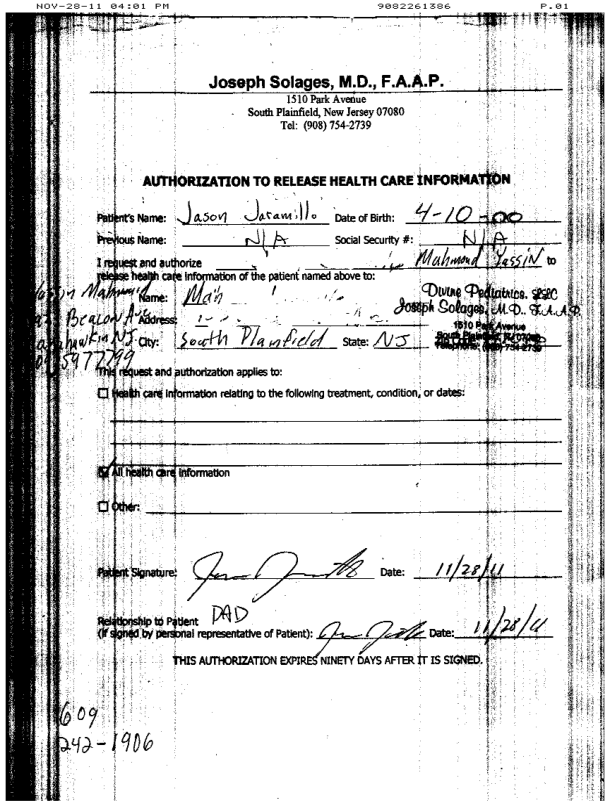 NOV-28-11 04:01 PM 9082261386 P.01
Joseph Solages, M.D., F.A.A.P.
1510 Park Avenue
South Plainfield, New Jersey 07080
Tel: (908) 754-2739
AUTHORIZATION TO RELEASE HEALTH CARE INFORMATION
Patient's Name: Jason Jaramillo Date of Birth: 4-10-00
Previous Name: N/A Social Security #: N/A
I request and authorize Mahmoud Yassin to
release health care information of the patient named above to:
Name: Divine Pediatrics
Address: Joseph Solages, M.D., F.A.A.P.
Beacon 1510 Park Avenue
City: South Plainfield State: NJ
5977799
This request and authorization applies to:
Health care information relating to the following treatment, condition, or dates:
All health care information
Other:
Patient Signature: Date: 11/28/11
Relationship to Patient DAD
(if signed by personal representative of Patient): Date: 11/28/11
THIS AUTHORIZATION EXPIRES NINETY DAYS AFTER IT IS SIGNED.
609
242-1906